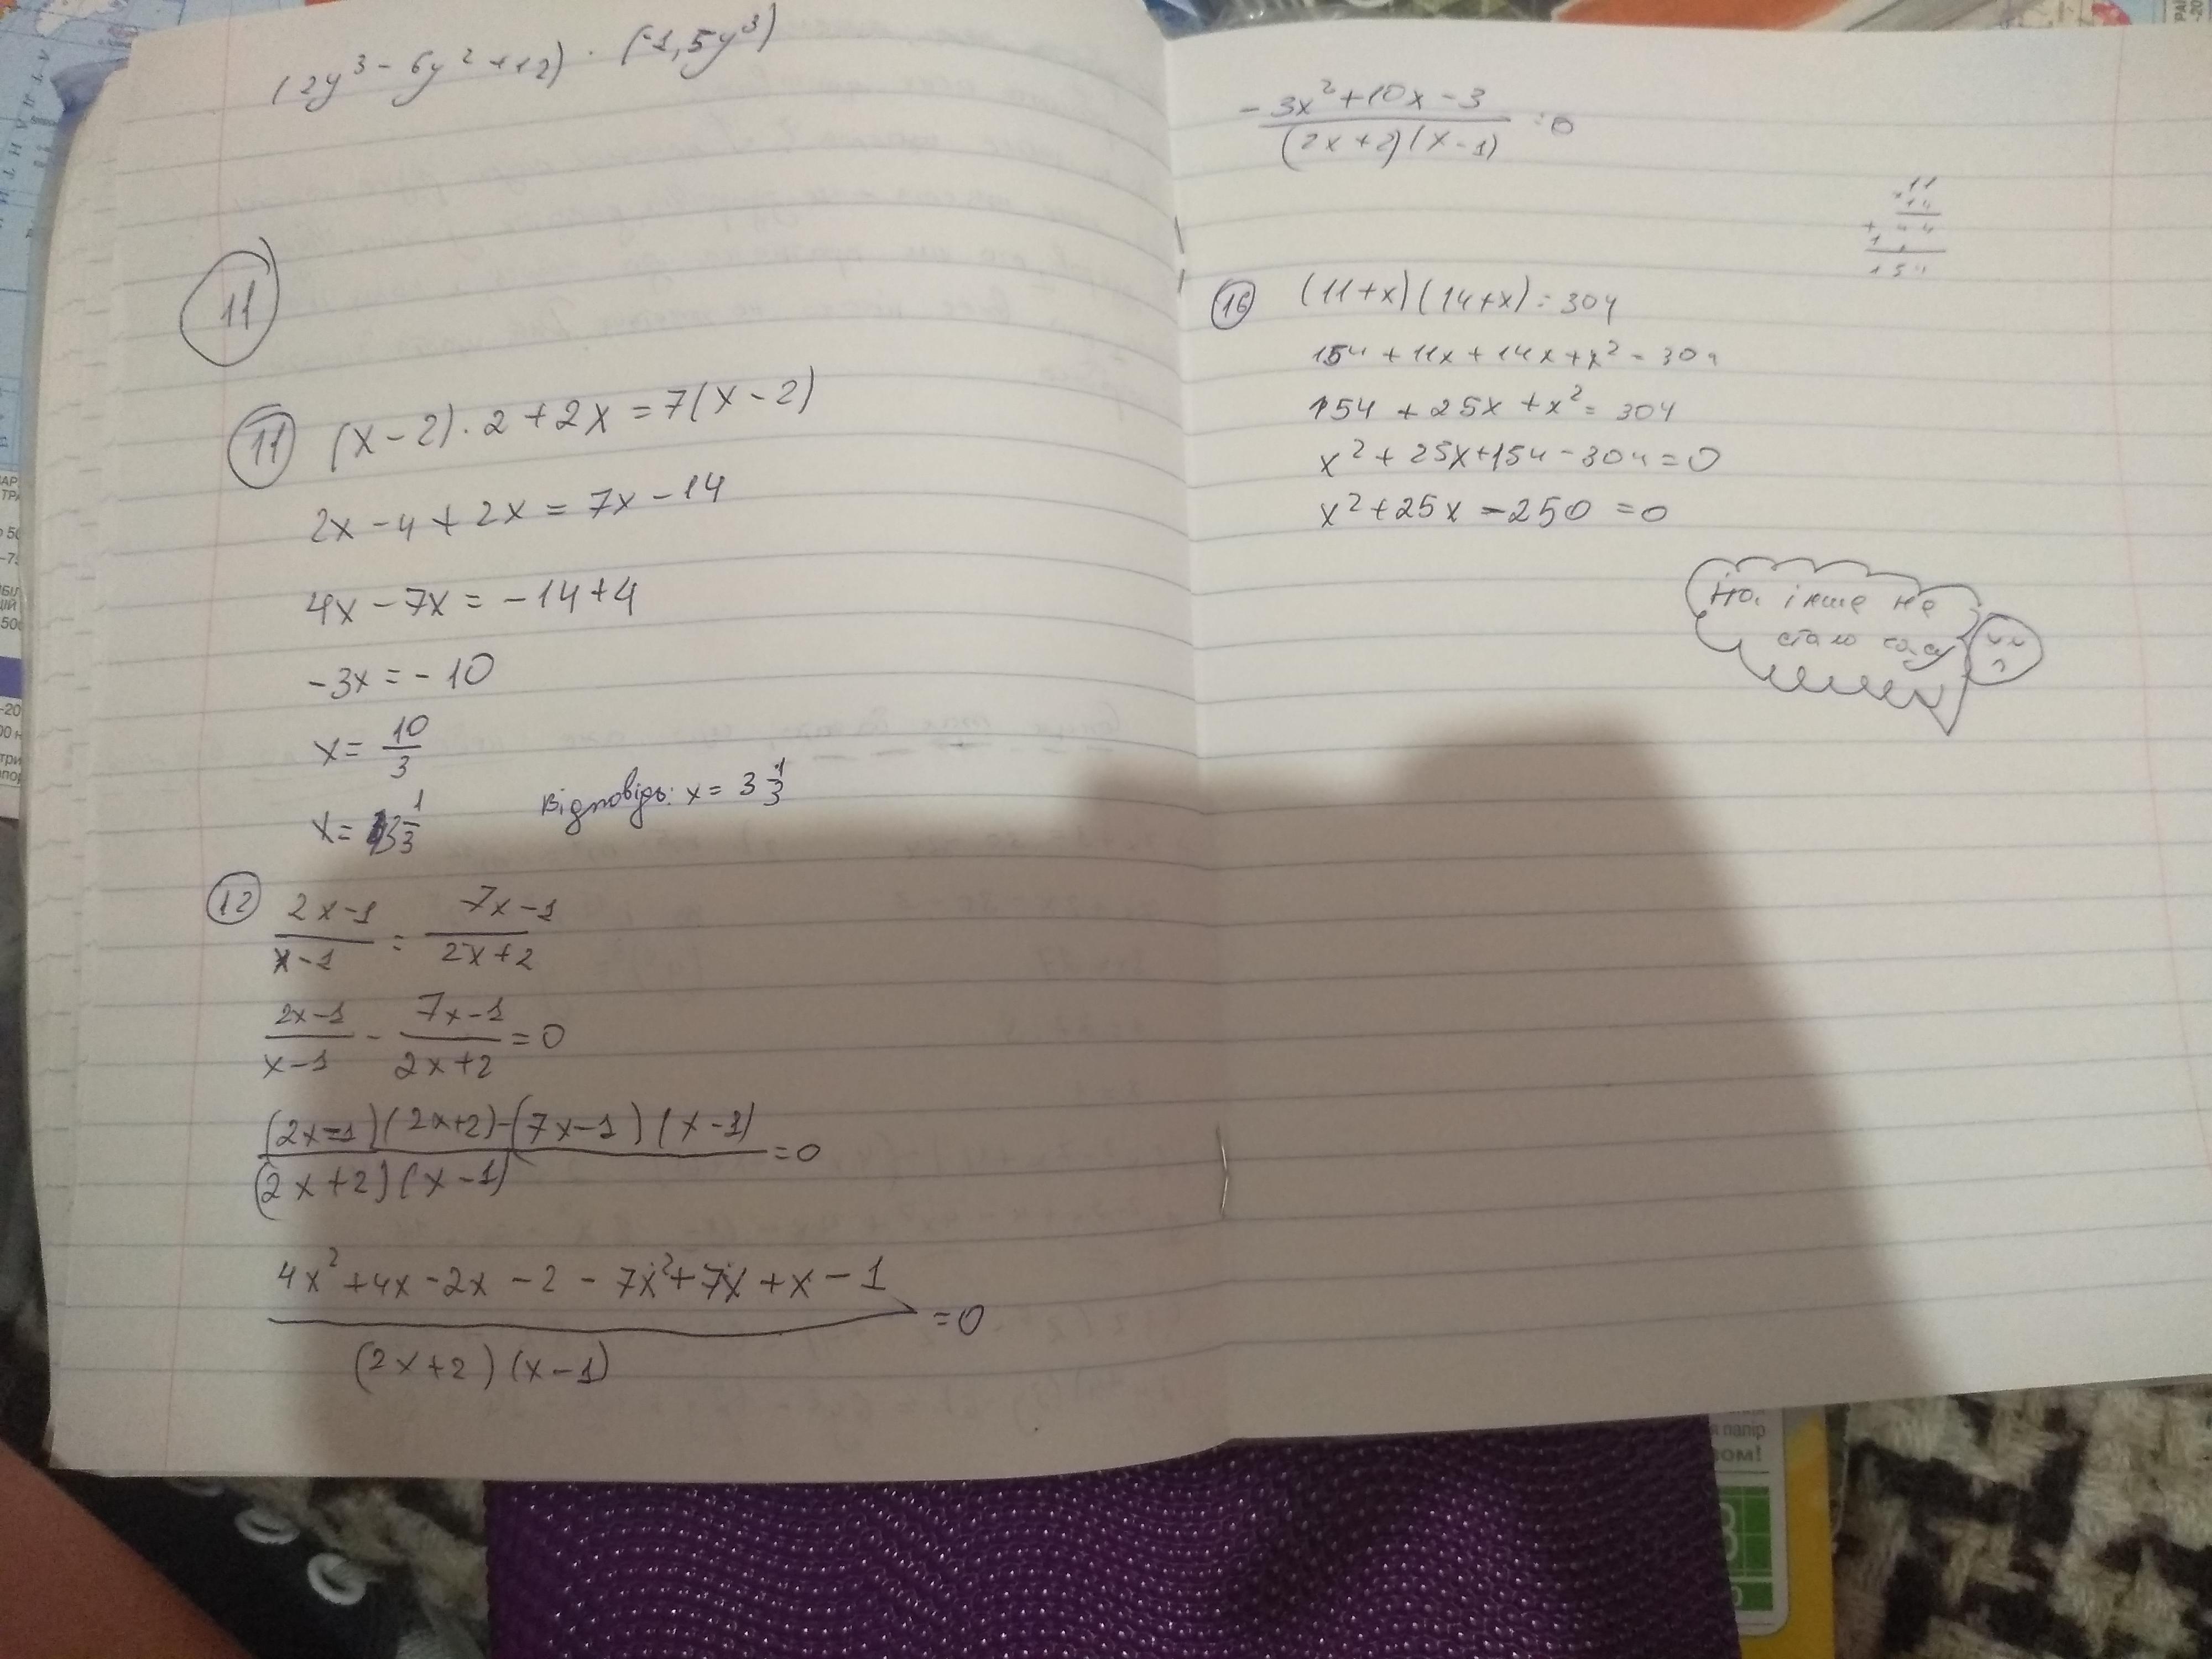 (2y³ - 6y² + 12) · (-1,5y³)
11
11 (x - 2) · 2 + 2x = 7(x - 2)
2x - 4 + 2x = 7x - 14
4x - 7x = -14 + 4
-3x = -10
x = 10/3
x = 3 1/3 Відповідь: x = 3 1/3
12 (2x - 1)/(x - 1) = (7x - 1)/(2x + 2)
(2x - 1)/(x - 1) - (7x - 1)/(2x + 2) = 0
((2x - 1)(2x + 2) - (7x - 1)(x - 1))/((2x + 2)(x - 1)) = 0
(4x² + 4x - 2x - 2 - 7x² + 7x + x - 1)/((2x + 2)(x - 1)) = 0
(-3x² + 10x - 3)/((2x + 2)(x - 1)) = 0
11
14
+ 44
154
16 (11 + x)(14 + x) = 304
154 + 11x + 14x + x² = 304
154 + 25x + x² = 304
x² + 25x + 154 - 304 = 0
x² + 25x - 250 = 0
На інше не
стало часу
папір
ром!